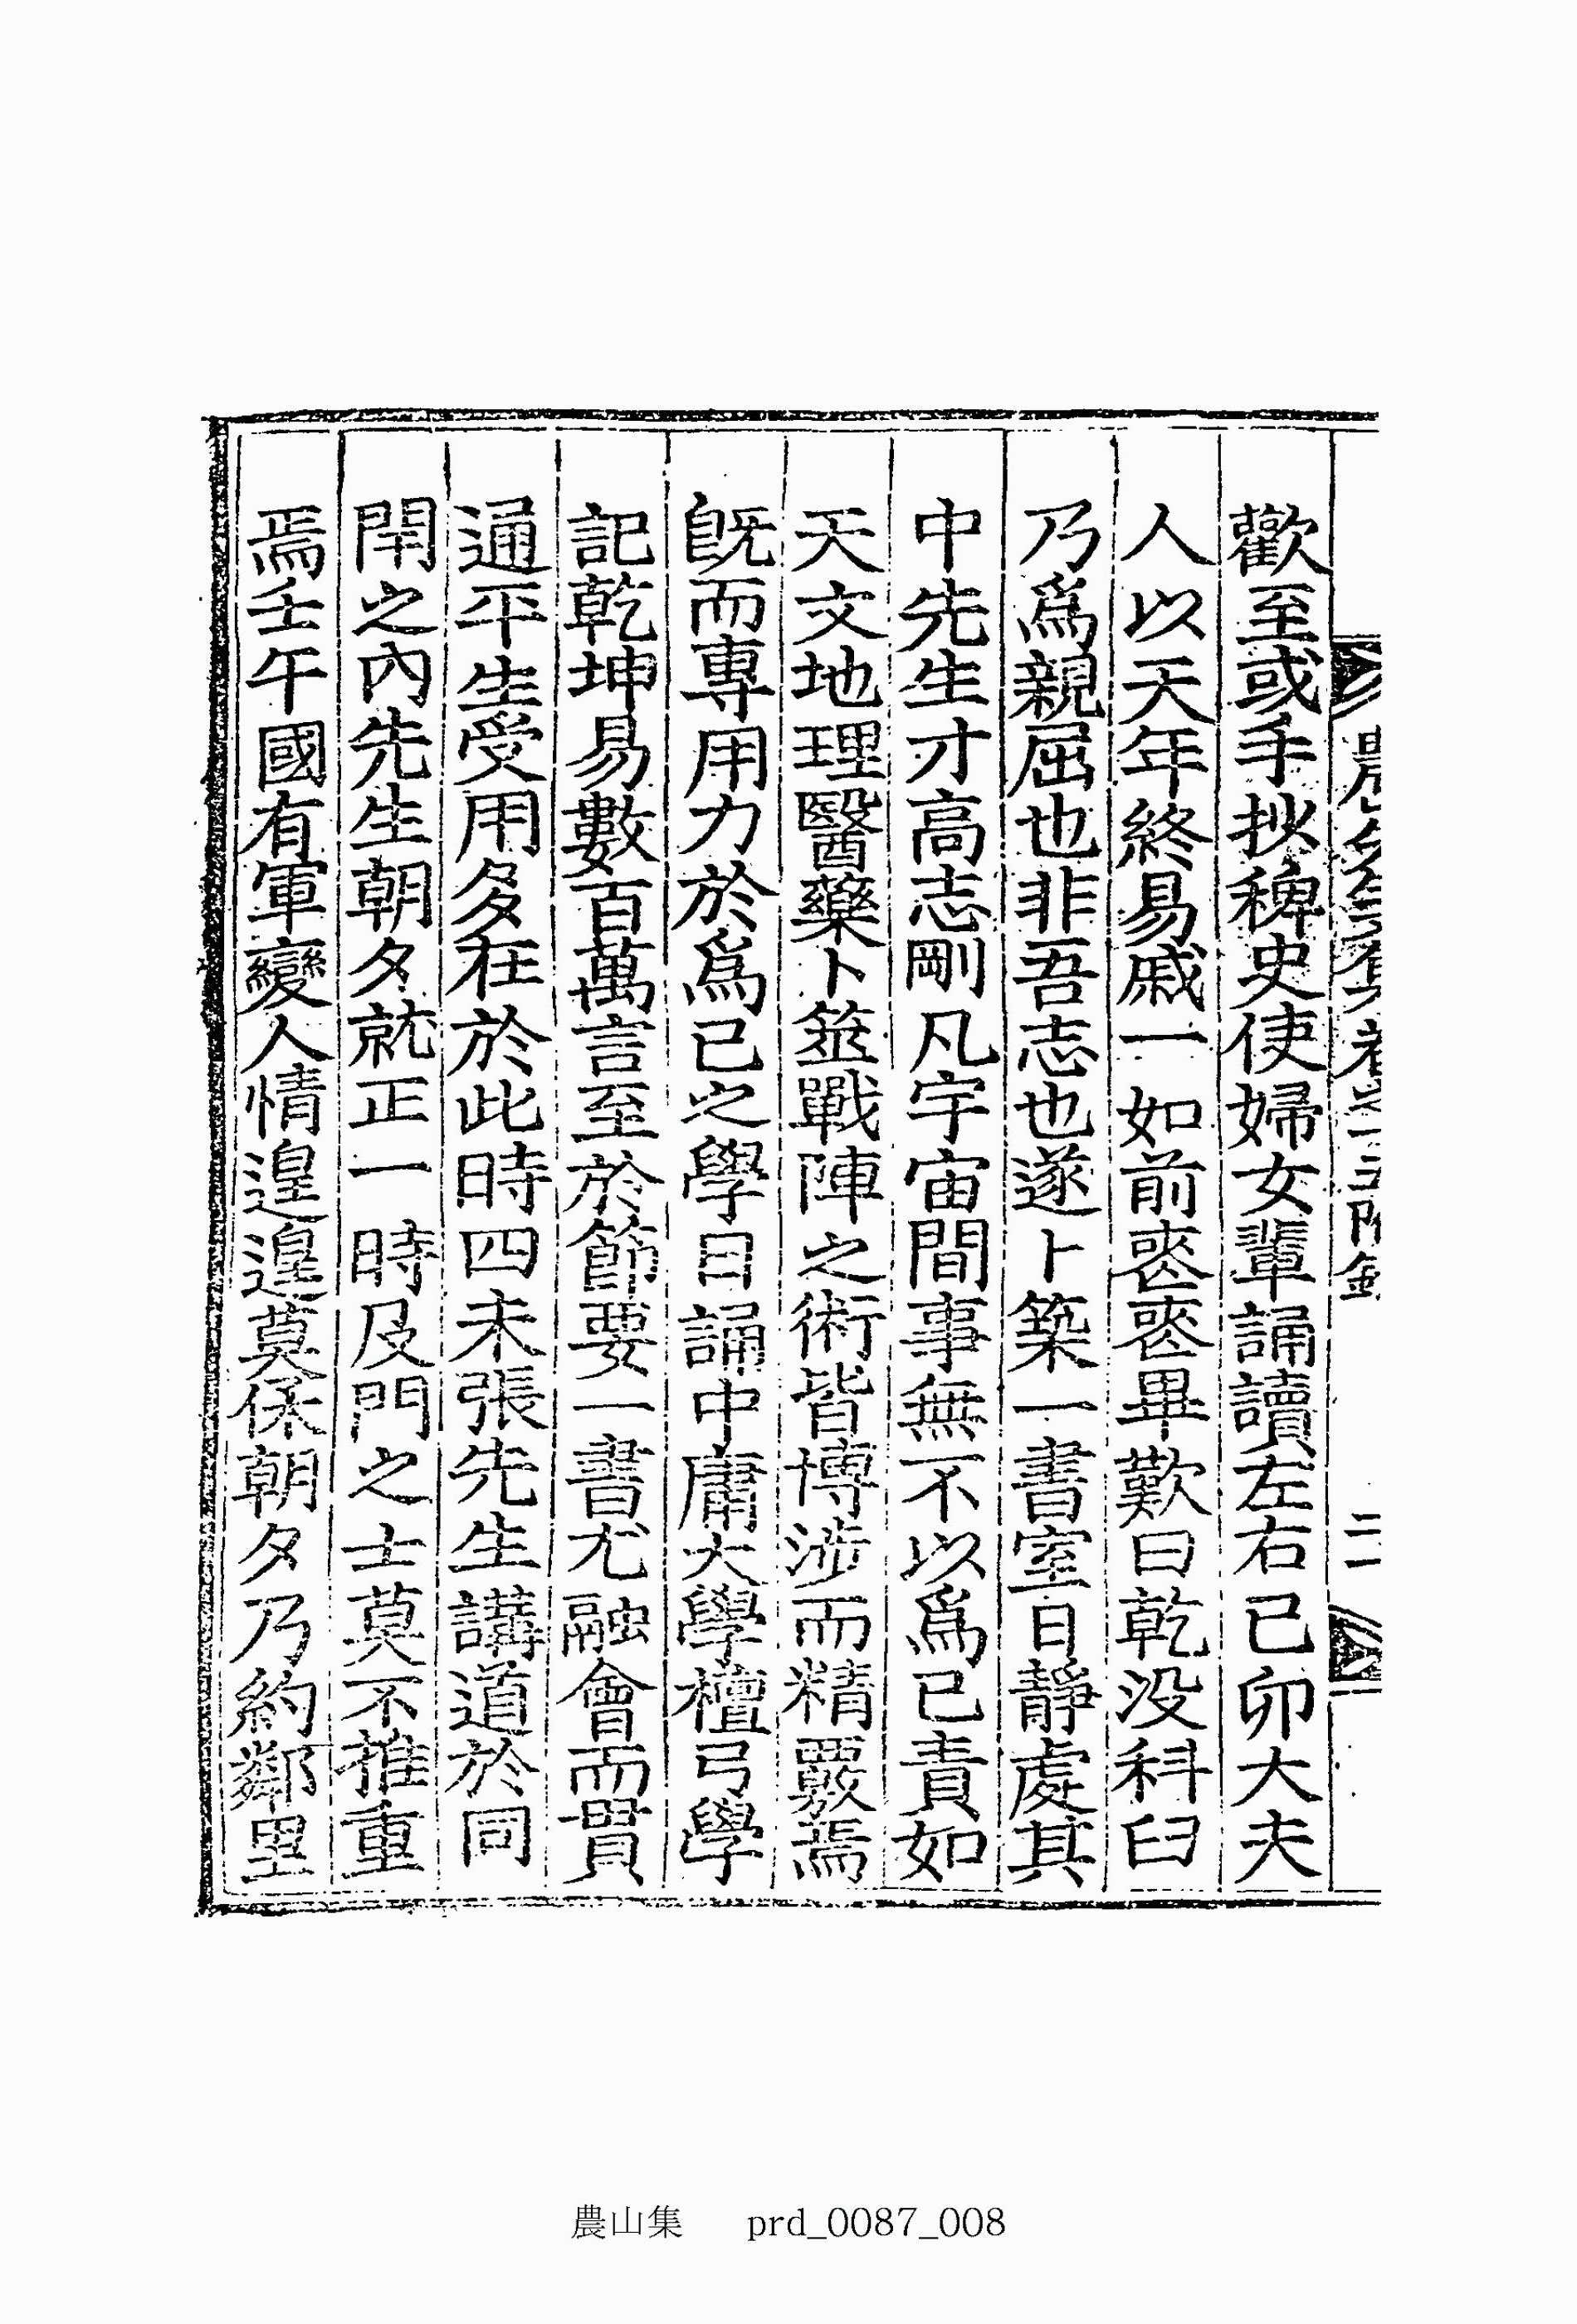 歡至或手抄稗史使婦女輩誦讀左右己卯大夫
人以天年終易戚一如前喪喪畢歎曰乾没科臼
乃爲親屈也非吾志也遂卜築一書室日靜處其
中先生才高志剛凡宇宙間事無不以爲已責如
天文地理醫藥卜筮戰陣之術皆博涉而精覈焉
旣而專用力於爲已之學日誦中庸大學檀弓學
記乾坤易數百萬言至於節要一書尤融會而貫
通平生受用多在於此時四未張先生講道於同
閈之內先生朝夕就正一時及門之士莫不推重
焉壬午國有軍變人情遑遑莫保朝夕乃約鄰里
農山集 prd_0087_008